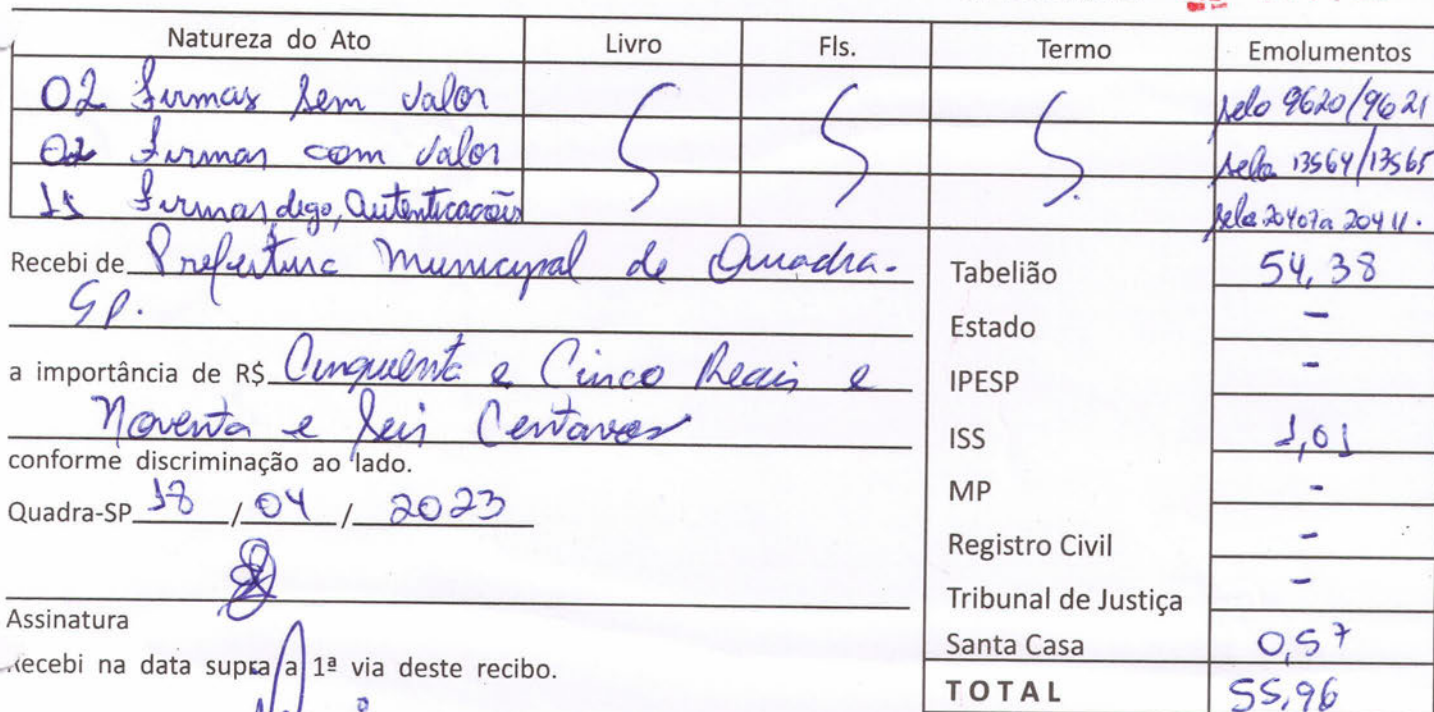 Natureza do Ato Livro Fls. Termo Emolumentos
02 firmas sem valor selo 9620/9621
02 firmas com valor selo 13564/13565
firmas digo, Autenticações selo 20407 a 20411.
Recebi de Prefeitura Municipal de Quadra-
SP.
a importância de R$ Cinquenta e Cinco Reais e
Noventa e Seis Centavos
conforme discriminação ao lado.
Quadra-SP 18 / 04 / 2023
Assinatura
Recebi na data supra a 1ª via deste recibo.
Tabelião 54,38
Estado -
IPESP -
ISS 1,01
MP -
Registro Civil -
Tribunal de Justiça -
Santa Casa 0,57
TOTAL 55,96